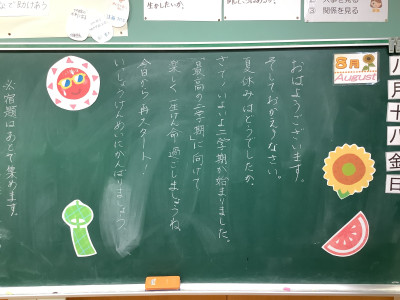 八月十八金日
8月
August
おはようございます。
そしておかえりなさい。
夏休みはどうでしたか。
さて、いよいよ二学期が始まりました。
「最高の二学期」に向けて
楽しく一生けん命過ごしましょうね。
今日から再スタート!
いっしょうけんめいにがんばりましょう。
※宿題はあとで集めます。
生かしたいか。
③ 関係を見る